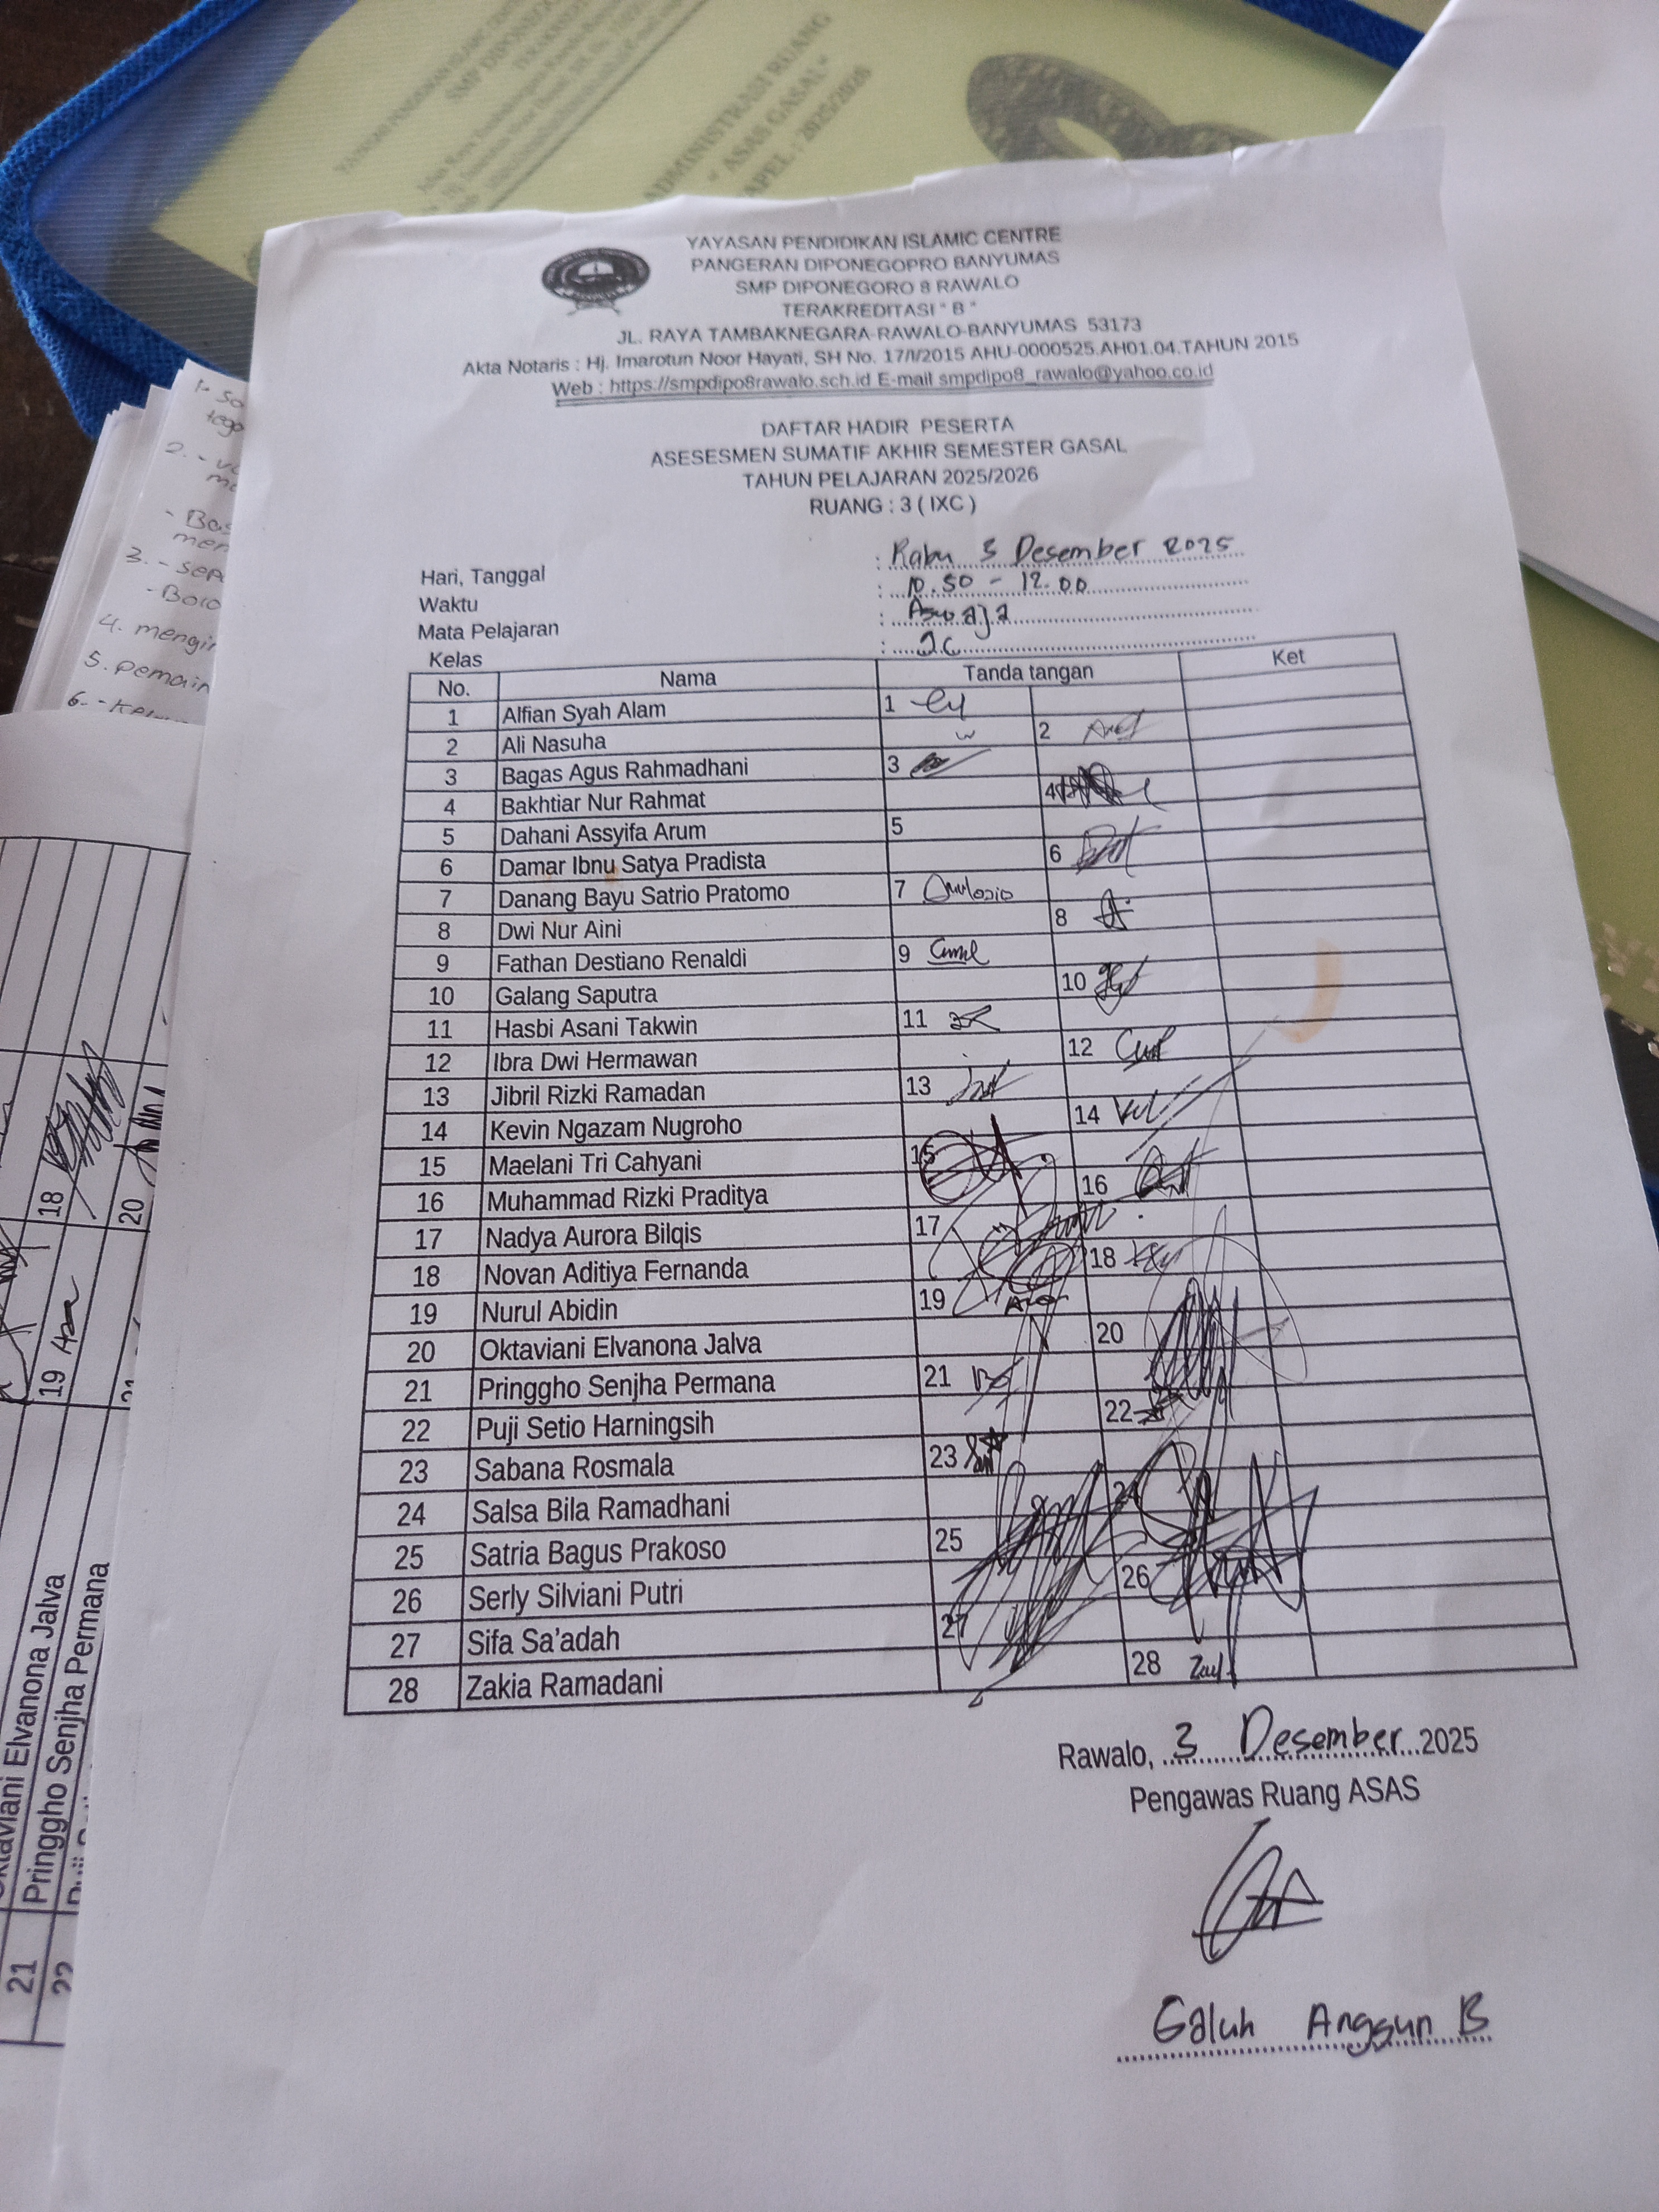 YAYASAN PENDIDIKAN ISLAMIC CENTRE
SMP DIPONEGORO
ADMINISTRASI RUANG
" ASAS GASAL"
APEL : 2025/2026
YAYASAN PENDIDIKAN ISLAMIC CENTRE
PANGERAN DIPONEGOPRO BANYUMAS
SMP DIPONEGORO 8 RAWALO
TERAKREDITASI " B "
JL. RAYA TAMBAKNEGARA-RAWALO-BANYUMAS 53173
Akta Notaris : Hj. Imarotun Noor Hayati, SH No. 17/I/2015 AHU-0000525.AH01.04.TAHUN 2015
Web : https://smpdipo8rawalo.sch.id E-mail smpdipo8_rawalo@yahoo.co.id
DAFTAR HADIR PESERTA
ASESESMEN SUMATIF AKHIR SEMESTER GASAL
TAHUN PELAJARAN 2025/2026
RUANG : 3 ( IXC )
Hari, Tanggal : Rabu 3 Desember 2025
Waktu : 10.50 - 12.00
Mata Pelajaran : Aswaja
Kelas :
No. Nama Tanda tangan Ket
1 Alfian Syah Alam 1
2 Ali Nasuha 2
3 Bagas Agus Rahmadhani 3
4 Bakhtiar Nur Rahmat 4
5 Dahani Assyifa Arum 5
6 Damar Ibnu Satya Pradista 6
7 Danang Bayu Satrio Pratomo 7
8 Dwi Nur Aini 8
9 Fathan Destiano Renaldi 9
10 Galang Saputra 10
11 Hasbi Asani Takwin 11
12 Ibra Dwi Hermawan 12
13 Jibril Rizki Ramadan 13
14 Kevin Ngazam Nugroho 14
15 Maelani Tri Cahyani 15
16 Muhammad Rizki Praditya 16
17 Nadya Aurora Bilqis 17
18 Novan Aditiya Fernanda 18
19 Nurul Abidin 19
20 Oktaviani Elvanona Jalva 20
21 Pringgho Senjha Permana 21
22 Puji Setio Harningsih 22
23 Sabana Rosmala 23
24 Salsa Bila Ramadhani 24
25 Satria Bagus Prakoso 25
26 Serly Silviani Putri 26
27 Sifa Sa'adah 27
28 Zakia Ramadani 28
Rawalo, 3 Desember 2025
Pengawas Ruang ASAS
Galuh Anggun B
2. -
3. - sepa
4. mengir
5. pemain
6. -
18
20
19
Elvanona Jalva
21 Pringgho Senjha Permana
22